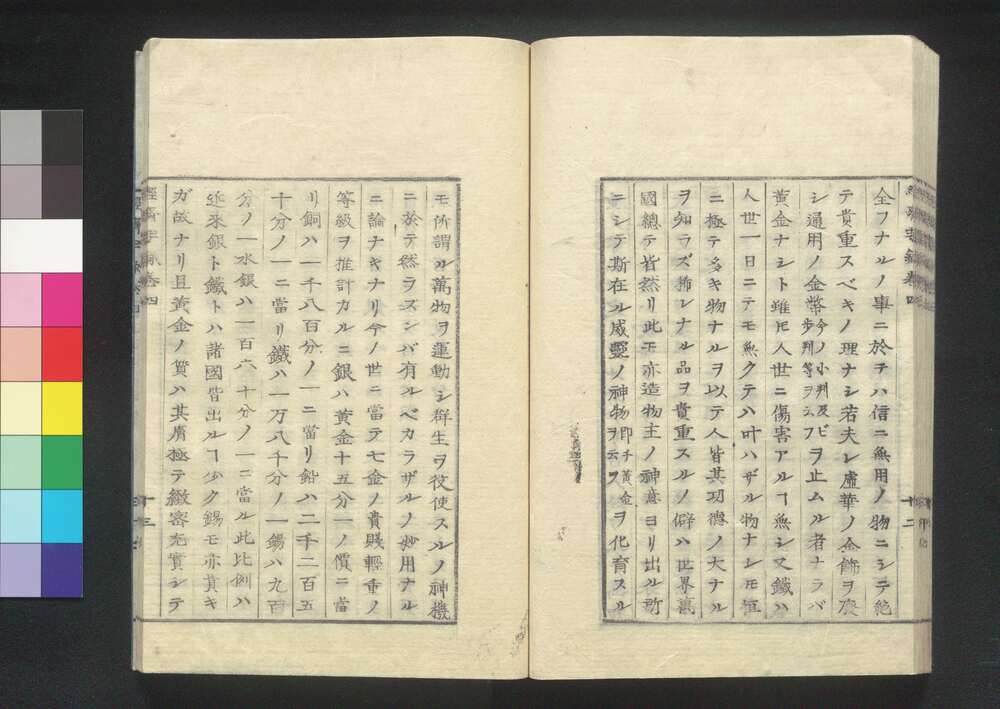 全フナルノ事ニ於テハ信ニ無用ノ物ニシテ絶
テ貴重スベキノ理ナシ若夫レ虚華ノ金飾ヲ廃
シ通用ノ金幣今ノ小判及ビ歩判等ヲ云フヲ止ムル者ナラバ
黄金ナシト雖𪜈人世ニ傷害アルヿ無シ又鐵ハ
人世一日ニテモ無クテハ叶ハザル物ナレモ
ニ極テ多キ物ナルヲ以テ人皆其功德ノ大ナル
ヲ知ラズ稀レナル品ヲ貴重スルノ僻ハ世界萬
國總テ皆然リ此モ亦造物主ノ神意ヨリ出ル所
ニシテ斯在ル威靈ノ神物即チ黄金ヲ云フヲ化育スル
十二
モ所謂ル萬物ヲ運動シ群生ヲ役使スルノ神機
ニ於テ然ラズンバ有ルベカラザルノ妙用ナル
ニ論ナキナリ今ノ世ニ當テ七金ノ貴賤輕重ノ
等級ヲ推計カルニ銀ハ黄金十五分一ノ價ニ當
リ銅ハ一千八百分ノ一ニ當リ鉛ハ二千二百五
十分ノ一ニ當リ鐵ハ一万八千分ノ一錫ハ九百
分ノ一水銀ハ一百六十分ノ一ニ當ル此比例ハ
近來銀ト鐵トハ諸國皆出ルヿ少ク錫モ亦貴キ
ガ故ナリ且黄金ノ質ハ其膚極テ緻密充實シテ
卷四
十三